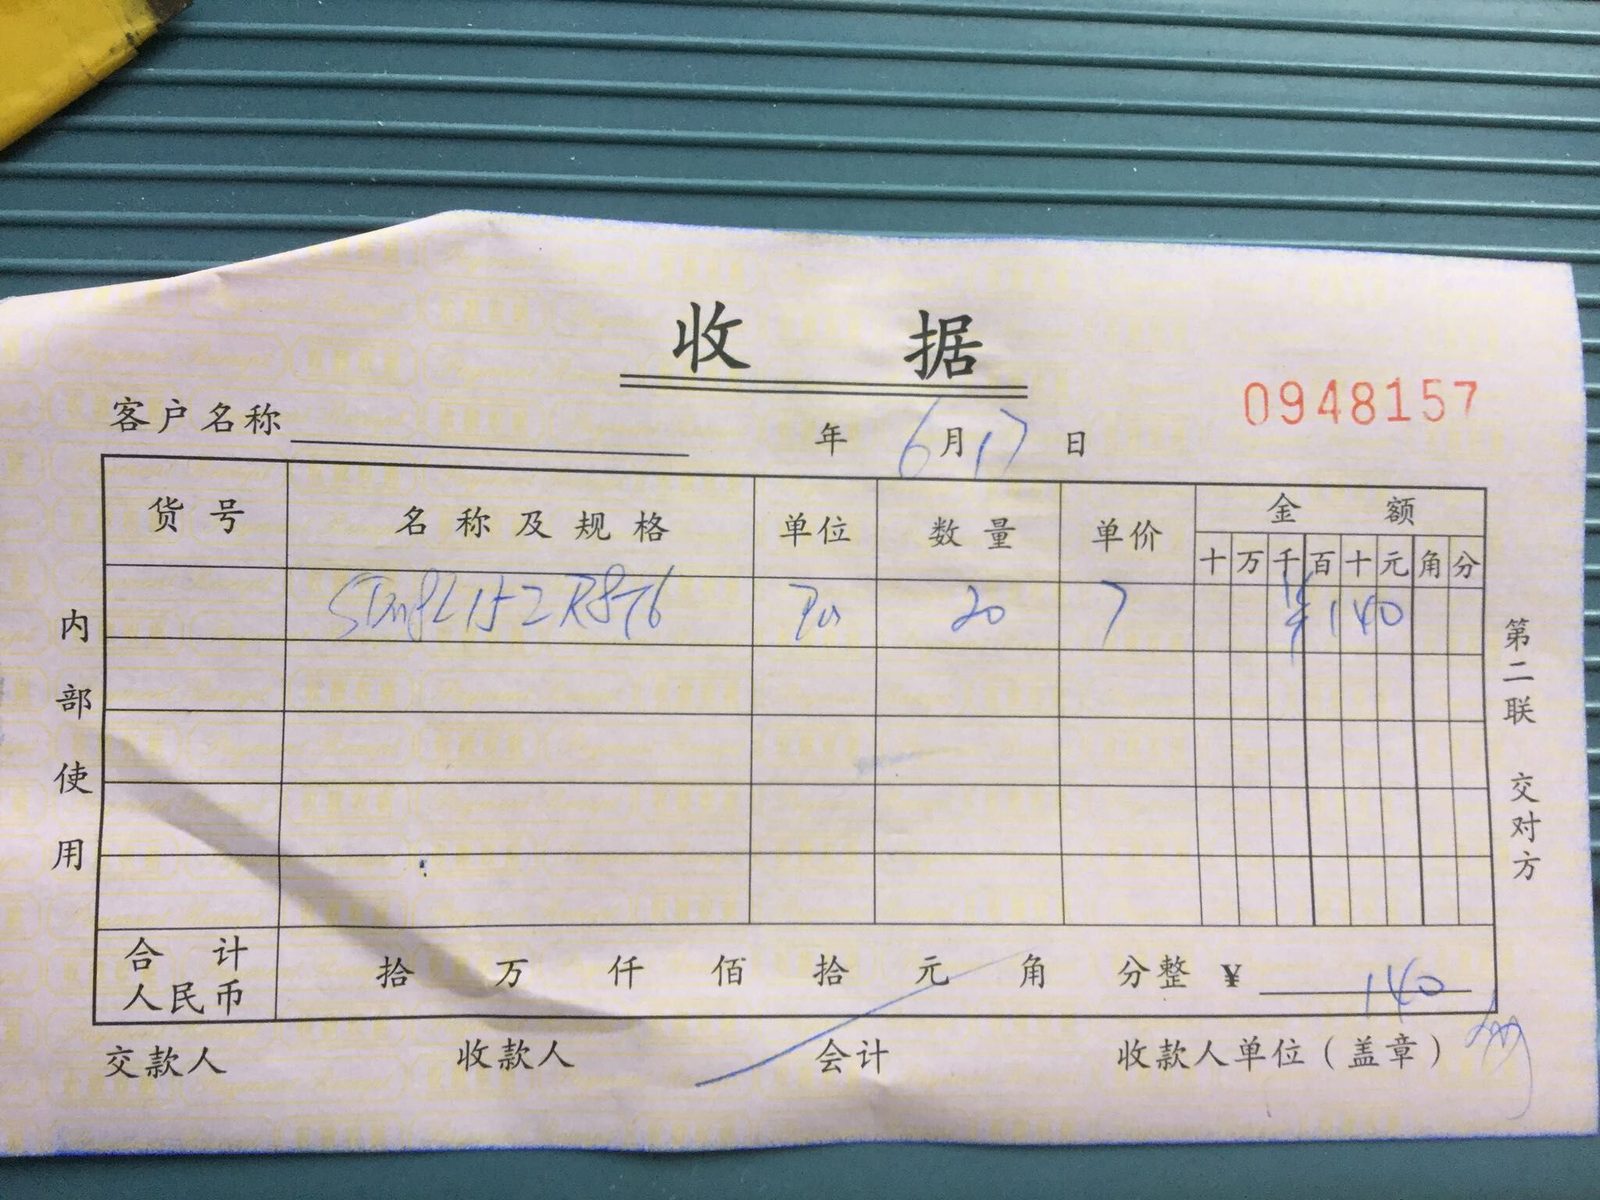 收 据
0948157
客户名称 年 6月17日
货号 名称及规格 单位 数量 单价 金额
十 万 千 百 十 元 角 分
STM8L152R8T6 20 7 ¥140
内部使用
第二联 交对方
合计人民币 拾 万 仟 佰 拾 元 角 分整 ¥ 140
交款人 收款人 会计 收款人单位(盖章)